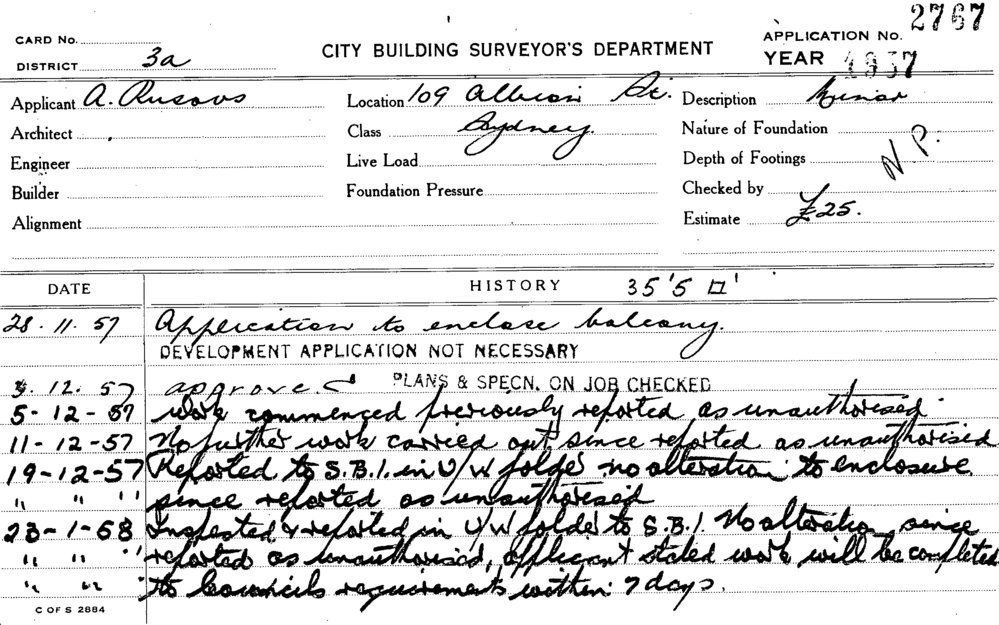 2767
CARD No.
APPLICATION No.
CITY BUILDING SURVEYOR'S DEPARTMENT
DISTRICT 3a
YEAR 1957
Applicant A. Location 109 Albion St. Description Minor
Architect Class Sydney. Nature of Foundation
Engineer Live Load Depth of Footings N.P.
Builder Foundation Pressure Checked by
Alignment Estimate £25.
DATE HISTORY 35'5 □'
28.11.57 Application to enclose balcony.
DEVELOPMENT APPLICATION NOT NECESSARY
3.12.57 approved PLANS & SPECN. ON JOB CHECKED
5-12-57 work commenced previously reported as unauthorised
11-12-57 No further work carried out since reported as unauthorised
19-12-57 Reported to S.B.I. in U/W folder no alteration to enclosure
" " " since reported as unauthorised
23-1-58 Inspected & reported in U/W folder to S.B.I. No alteration since
" " " reported as unauthorised, applicant stated work will be completed
" " " to Councils requirements within 7 days.
C OF S 2884